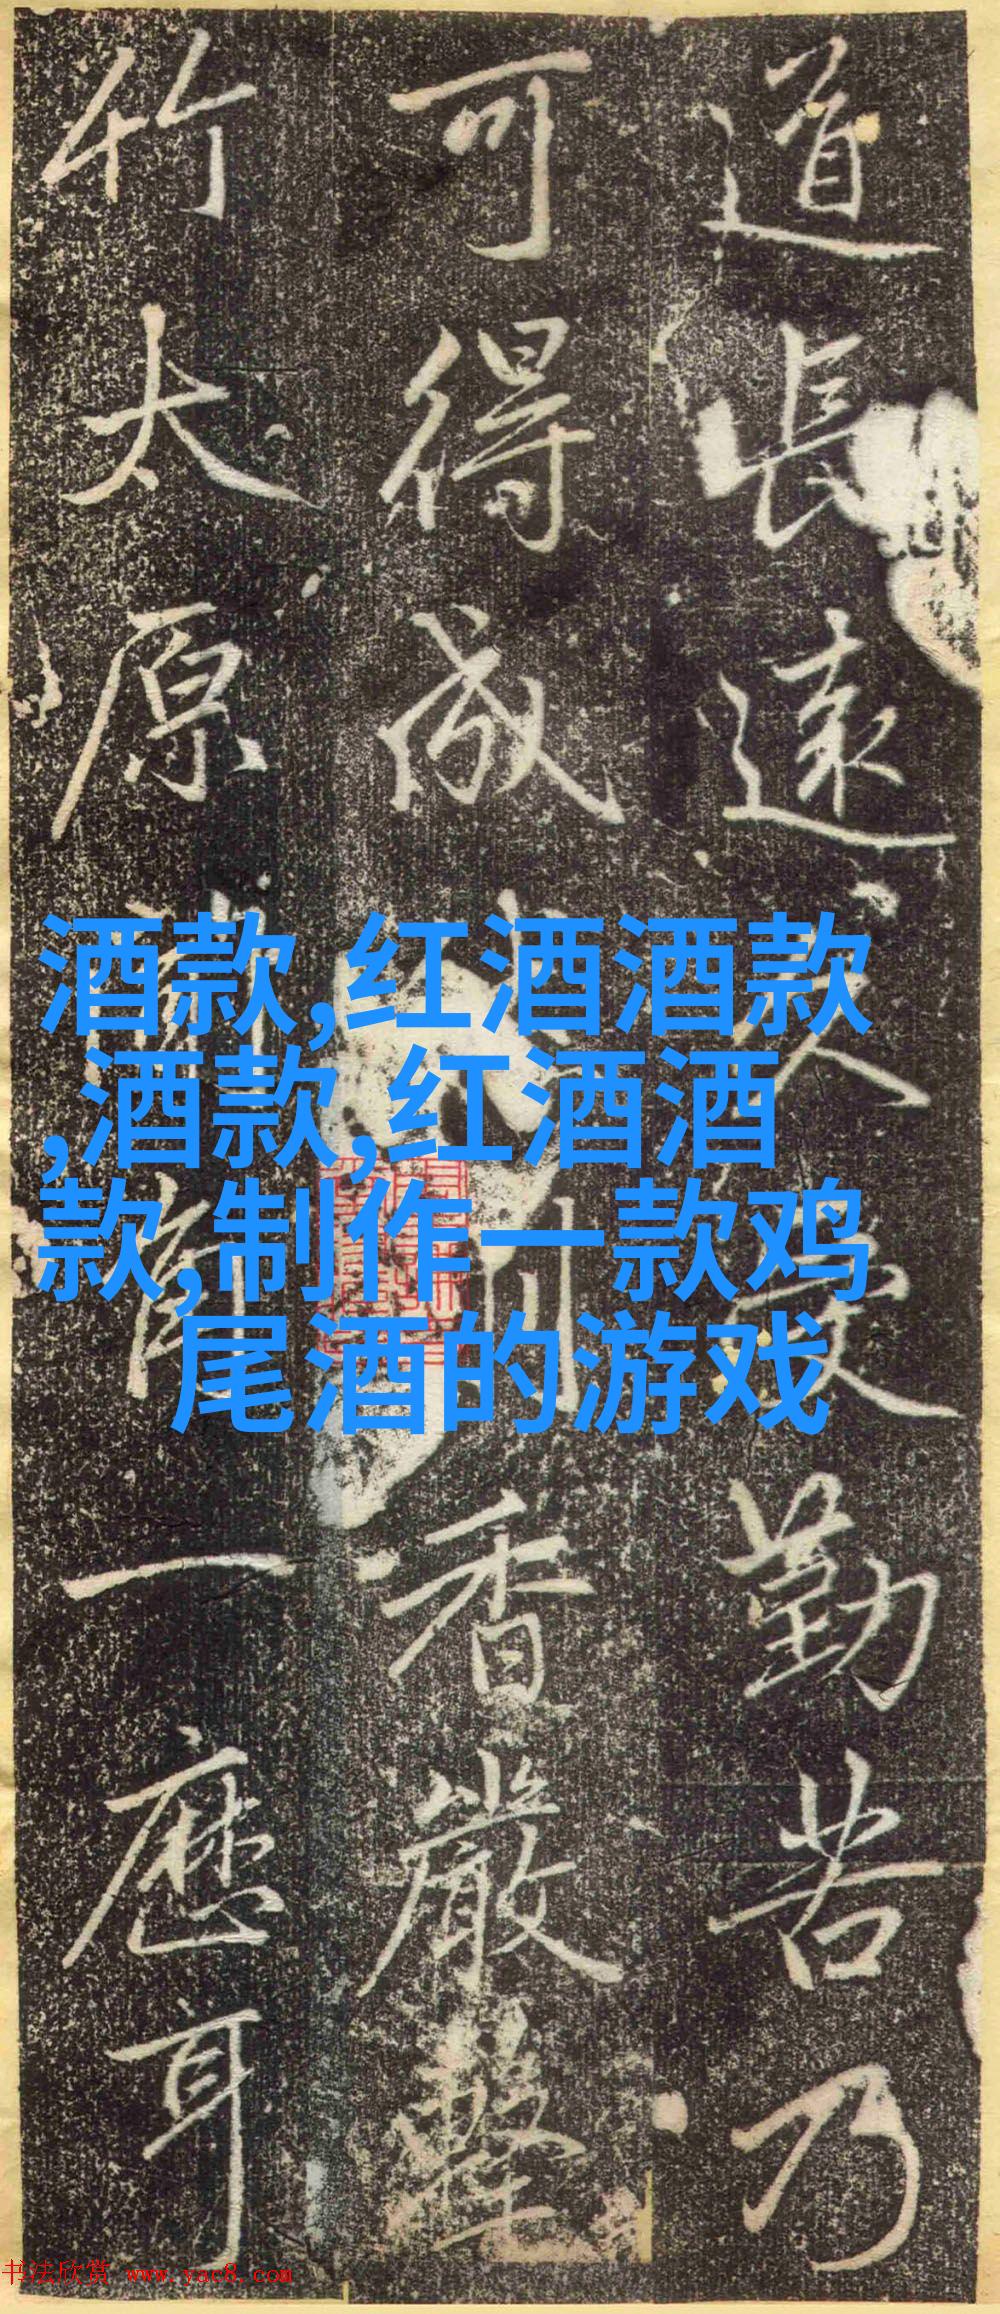 道長遠久受勤苦乃
可得成
香嚴擊
竹太原
一應耳
酒款,红酒酒款
,酒款,红酒酒
款,制作一款鸡
尾酒的游戏
书法欣赏 www.yac8.com